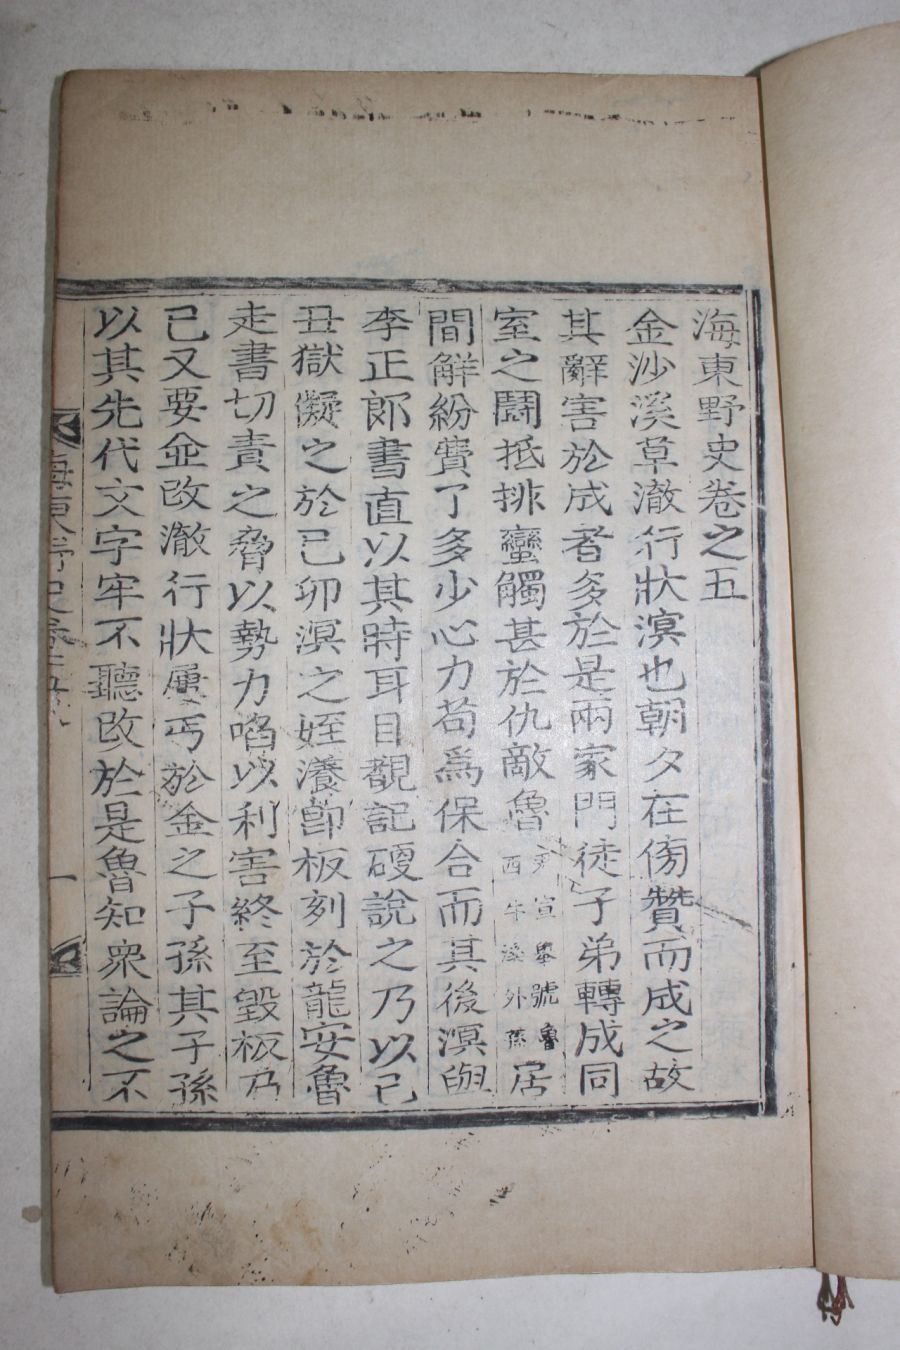 海東野史卷之五
金沙溪草澈行狀溟也朝夕在傍贊而成之故
其辭害於成者多於是兩家門徒子弟轉成同
室之鬪抵排蠻觸甚於仇敵魯尹宣擧號魯西牛溪外孫居
間解紛費了多少心力苟爲保合而其後溟與
李正郞書直以其時耳目覩記硬說之乃以己
丑獄擬之於己卯溟之姪瀁節板刻於龍安魯
走書切責之脅以勢力啗以利害終至毀板乃
已又要企改澈行狀屢丐於金之子孫其子孫
以其先代文字牢不聽改於是魯知衆論之不
海東野史卷之五
一